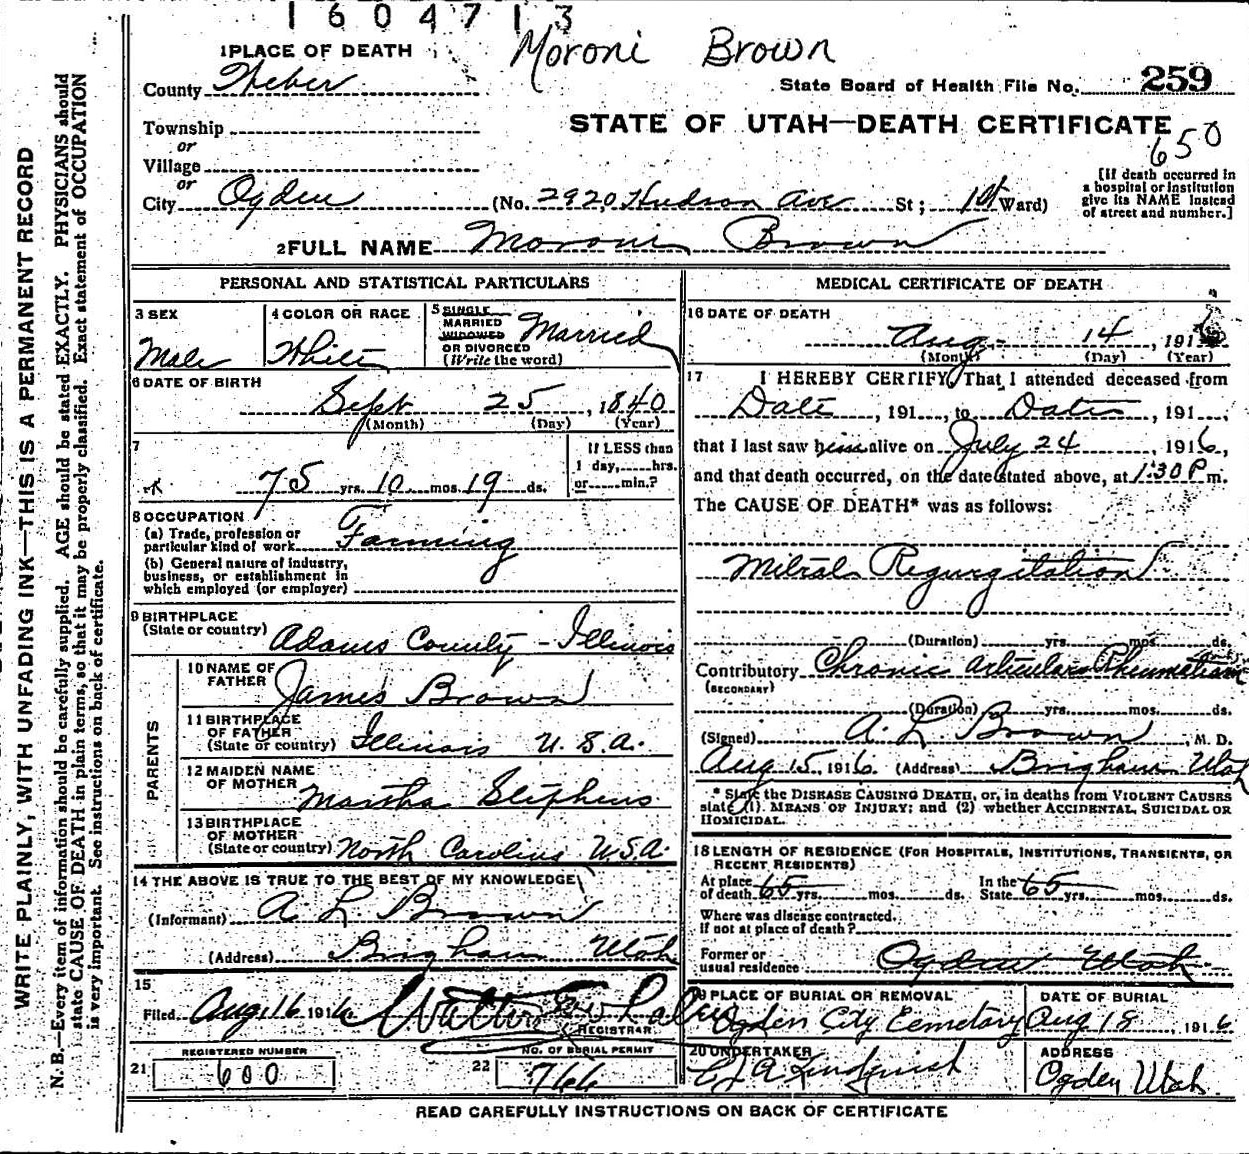 1604713
Moroni Brown
1 PLACE OF DEATH
County Weber
State Board of Health File No. 259
STATE OF UTAH—DEATH CERTIFICATE
650
Township
or
Village
or
City Ogden (No. 2920 Hudson Ave St; 1st Ward)
[If death occurred in
a hospital or institution
give its NAME instead
of street and number.]
2 FULL NAME Moroni Brown
PERSONAL AND STATISTICAL PARTICULARS
3 SEX
Male
4 COLOR OR RACE
White
5 SINGLE
MARRIED
WIDOWED
OR DIVORCED
(Write the word)
Married
6 DATE OF BIRTH
Sept 25, 1840
(Month) (Day) (Year)
7
75 yrs. 10 mos. 19 ds.
If LESS than
1 day, hrs.
or min.?
8 OCCUPATION
(a) Trade, profession or
particular kind of work Farming
(b) General nature of industry,
business, or establishment in
which employed (or employer)
9 BIRTHPLACE
(State or country) Adams County - Illinois
PARENTS
10 NAME OF
FATHER
James Brown
11 BIRTHPLACE
OF FATHER
(State or country) Illinois U.S.A.
12 MAIDEN NAME
OF MOTHER
Martha Stephens
13 BIRTHPLACE
OF MOTHER
(State or country) North Carolina U.S.A.
14 THE ABOVE IS TRUE TO THE BEST OF MY KNOWLEDGE
(Informant) A L Brown
(Address) Brigham Utah
15
Filed Aug 16 1916
REGISTRAR
REGISTERED NUMBER
21 600
NO. OF BURIAL PERMIT
22 766
MEDICAL CERTIFICATE OF DEATH
16 DATE OF DEATH
Aug- 14, 1916
(Month) (Day) (Year)
17 I HEREBY CERTIFY, That I attended deceased from
Date, 191, to Date, 191,
that I last saw him alive on July 24, 1916,
and that death occurred, on the date stated above, at 1:30 P m.
The CAUSE OF DEATH* was as follows:
Mitral Regurgitation
(Duration) yrs. mos. ds.
Contributory Chronic Articular Rheumatism
(SECONDARY)
(Duration) yrs. mos. ds.
(Signed) A. L. Brown, M. D.
Aug 15, 1916. (Address) Brigham Utah
* State the DISEASE CAUSING DEATH, or, in deaths from VIOLENT CAUSES
state (1). MEANS OF INJURY; and (2) whether ACCIDENTAL, SUICIDAL OR
HOMICIDAL.
18 LENGTH OF RESIDENCE (FOR HOSPITALS, INSTITUTIONS, TRANSIENTS, OR
RECENT RESIDENTS)
At place
of death 65 yrs. mos. ds.
In the
State 65 yrs. mos. ds.
Where was disease contracted.
If not at place of death?
Former or
usual residence Ogden Utah
19 PLACE OF BURIAL OR REMOVAL
Ogden City Cemetary
DATE OF BURIAL
Aug 18, 1916
20 UNDERTAKER
ADDRESS
Ogden Utah
READ CAREFULLY INSTRUCTIONS ON BACK OF CERTIFICATE
WRITE PLAINLY, WITH UNFADING INK—THIS IS A PERMANENT RECORD
N. B.—Every item of information should be carefully supplied. AGE should be stated EXACTLY. PHYSICIANS should
state CAUSE OF DEATH in plain terms, so that it may be properly classified. Exact statement of OCCUPATION
is very important. See instructions on back of certificate.